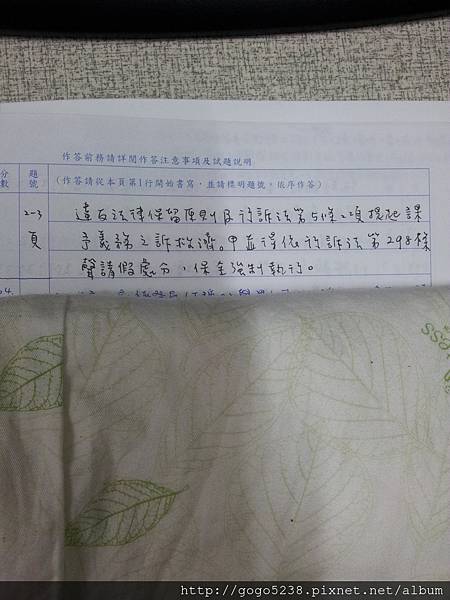 作答前務請詳閱作答注意事項及試題說明
分數
題號
(作答請從本頁第1行開始書寫,並請標明題號,依序作答)
2-3
頁
違反法律保留原則且行訴法第5條2項提起課
予義務之訴救濟。甲並得依行訴法第298條
聲請假處分,保全強制執行。
http://gogo5238.pixnet.net/album